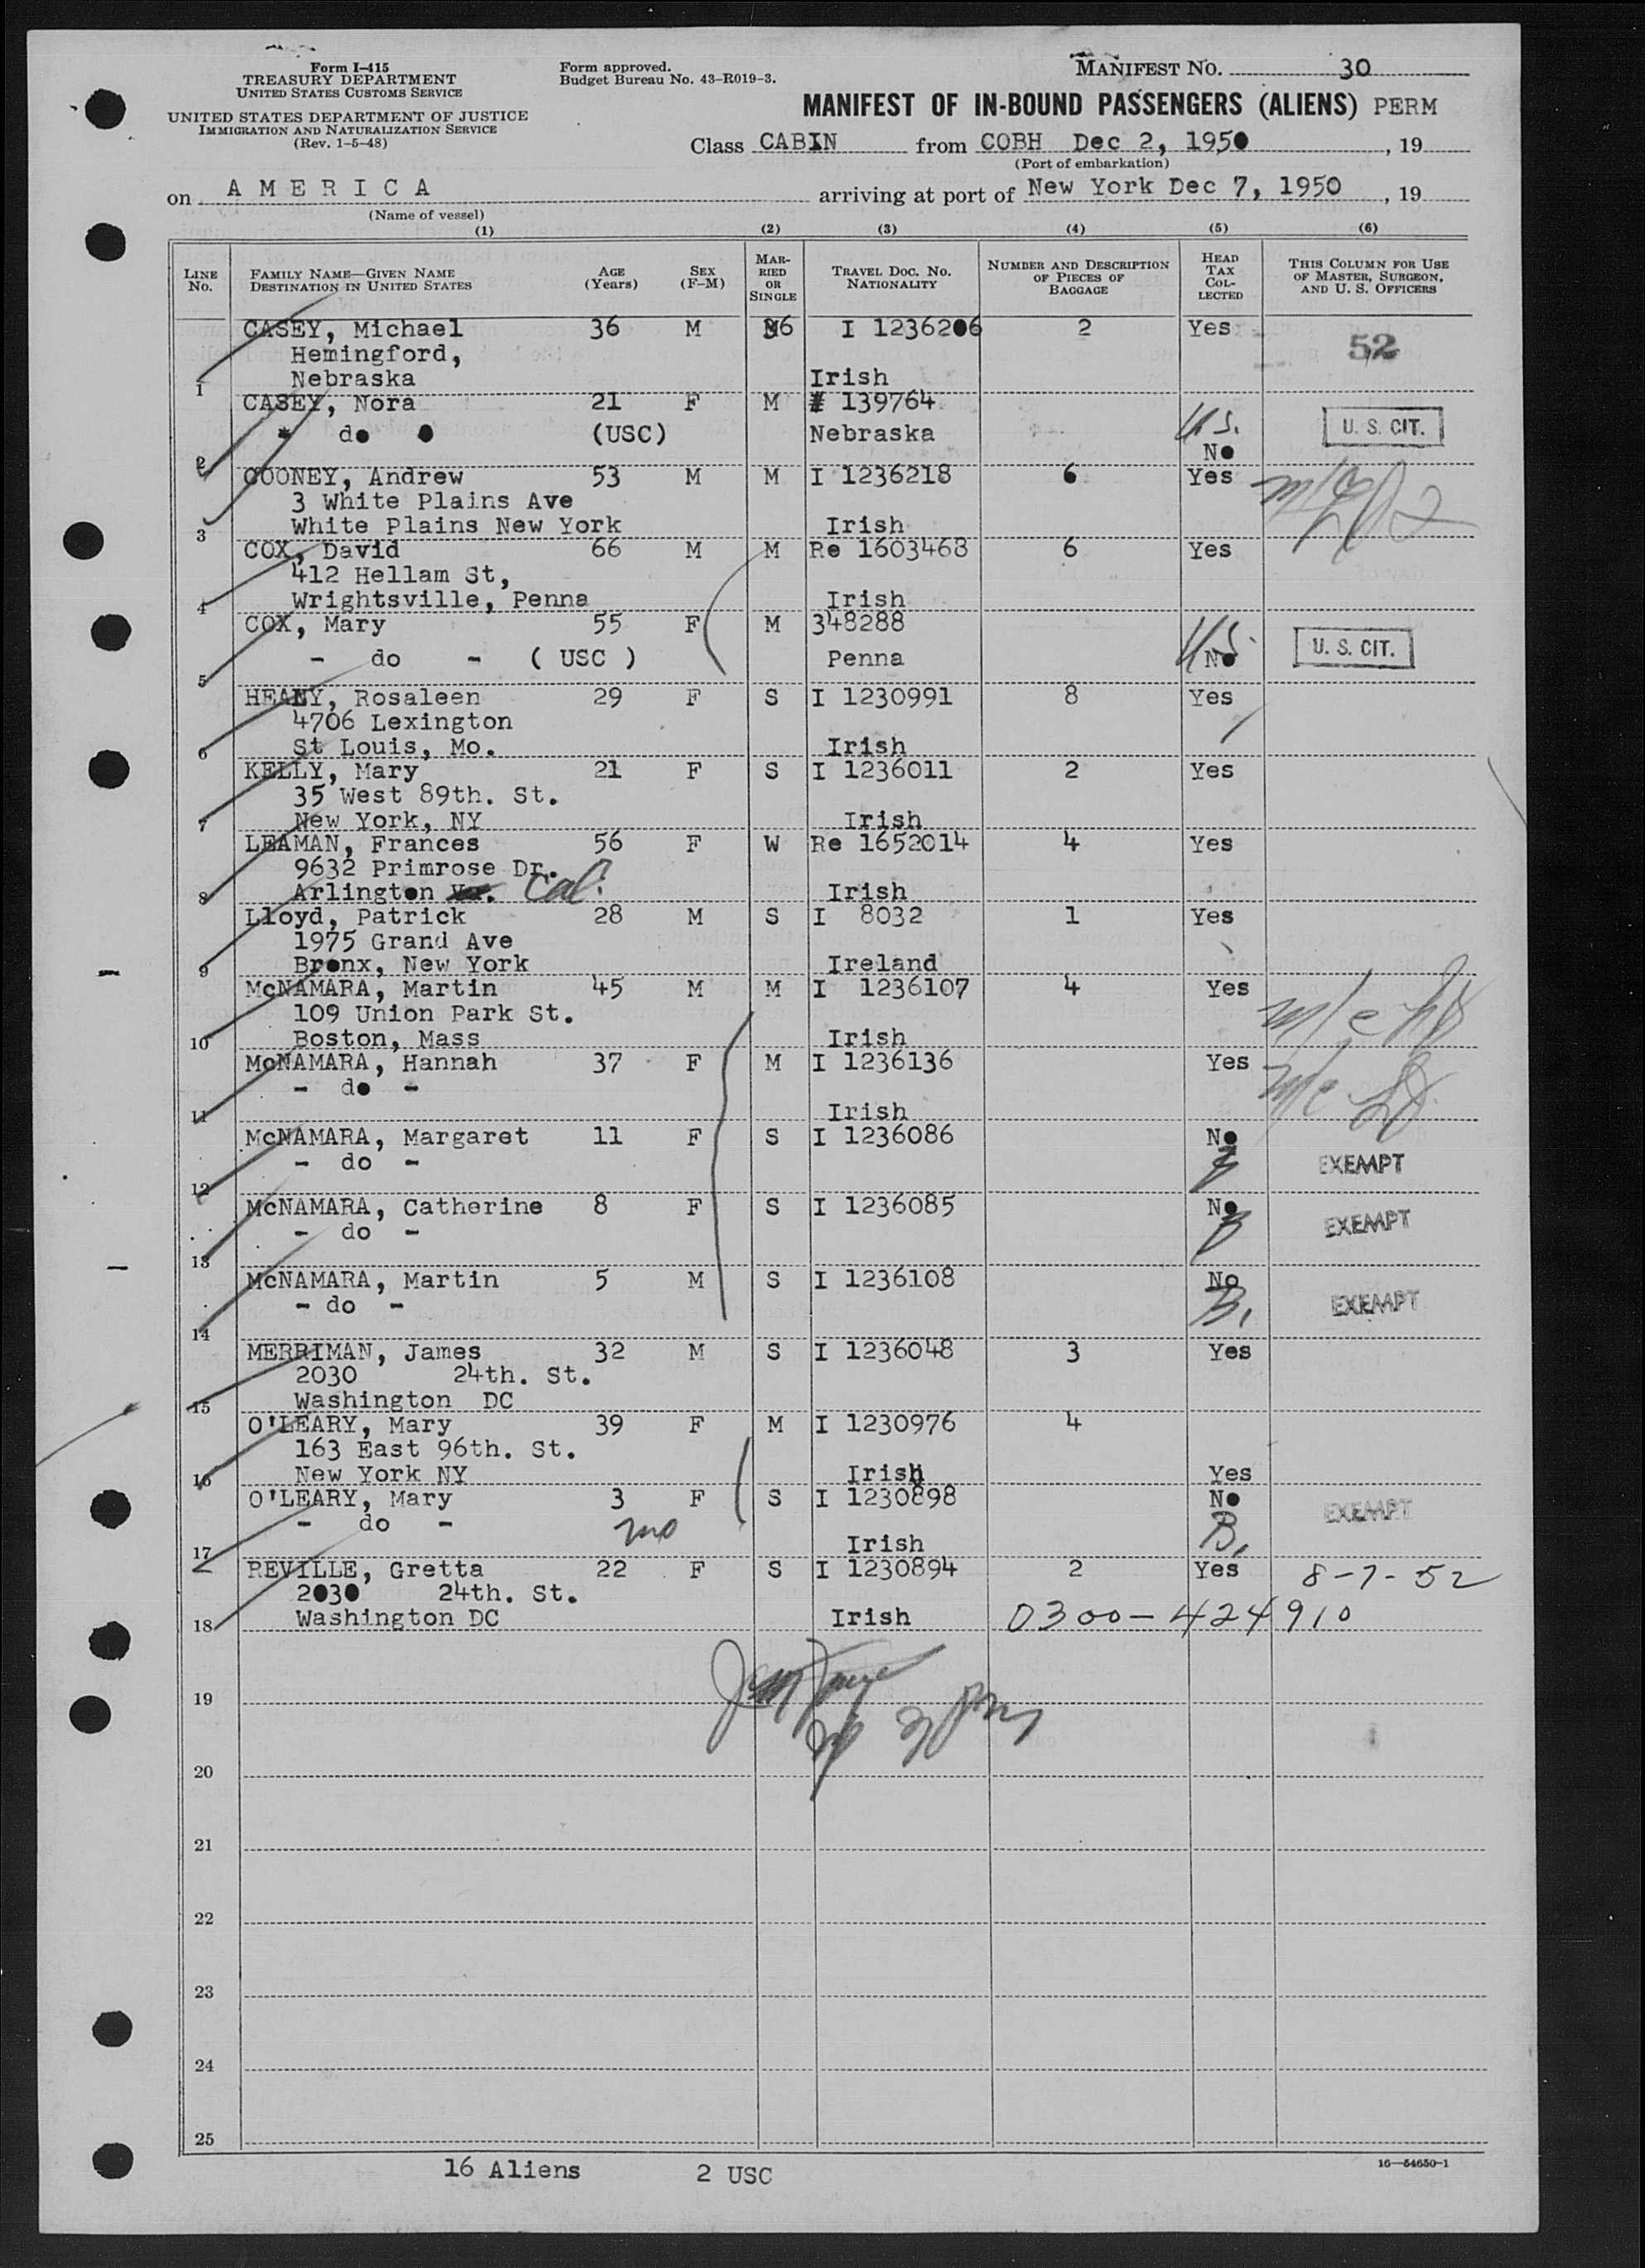 Form I-415
TREASURY DEPARTMENT
UNITED STATES CUSTOMS SERVICE
UNITED STATES DEPARTMENT OF JUSTICE
IMMIGRATION AND NATURALIZATION SERVICE
(Rev. 1-5-48)
Form approved.
Budget Bureau No. 43-R019-3.
MANIFEST NO. 30
MANIFEST OF IN-BOUND PASSENGERS (ALIENS) PERM
Class CABIN from COBH Dec 2, 1950, 19
(Port of embarkation)
on AMERICA arriving at port of New York Dec 7, 1950, 19
(Name of vessel)
(1) (2) (3) (4) (5) (6)
LINE No. FAMILY NAME—GIVEN NAME DESTINATION IN UNITED STATES AGE (Years) SEX (F-M) MARRIED OR SINGLE TRAVEL DOC. NO. NATIONALITY NUMBER AND DESCRIPTION OF PIECES OF BAGGAGE HEAD TAX COLLECTED THIS COLUMN FOR USE OF MASTER, SURGEON, AND U. S. OFFICERS
CASEY, Michael 36 M I 1236206 2 Yes
Hemingford, 52
1 Nebraska Irish
CASEY, Nora 21 F M # 139764
" do " (USC) Nebraska U.S. U. S. CIT.
2 No
COONEY, Andrew 53 M M I 1236218 6 Yes
3 White Plains Ave
3 White Plains New York Irish
COX, David 66 M M Re 1603468 6 Yes
412 Hellam St,
4 Wrightsville, Penna Irish
COX, Mary 55 F M 348288
- do - ( USC ) Penna U.S. No U. S. CIT.
5
HEANY, Rosaleen 29 F S I 1230991 8 Yes
4706 Lexington
6 St Louis, Mo. Irish
KELLY, Mary 21 F S I 1236011 2 Yes
35 West 89th. St.
7 New York, NY Irish
LEAMAN, Frances 56 F W Re 1652014 4 Yes
9632 Primrose Dr.
8 Arlington Cal. Irish
Lloyd, Patrick 28 M S I 8032 1 Yes
1975 Grand Ave
9 Bronx, New York Ireland
McNAMARA, Martin 45 M M I 1236107 4 Yes
109 Union Park St.
10 Boston, Mass Irish
McNAMARA, Hannah 37 F M I 1236136 Yes
- do -
11 Irish
McNAMARA, Margaret 11 F S I 1236086 No
- do - EXEMPT
12
McNAMARA, Catherine 8 F S I 1236085 No
- do - EXEMPT
13
McNAMARA, Martin 5 M S I 1236108 No
- do - B. EXEMPT
14
MERRIMAN, James 32 M S I 1236048 3 Yes
2030 24th. St.
15 Washington DC
O'LEARY, Mary 39 F M I 1230976 4
163 East 96th. St.
16 New York NY Irish Yes
O'LEARY, Mary 3 F S I 1230898 No EXEMPT
- do - mo B.
17 Irish
REVILLE, Gretta 22 F S I 1230894 2 Yes 8-7-52
2030 24th. St.
18 Washington DC Irish 0300-424910
19
20
21
22
23
24
25
16 Aliens 2 USC
16—54650-1